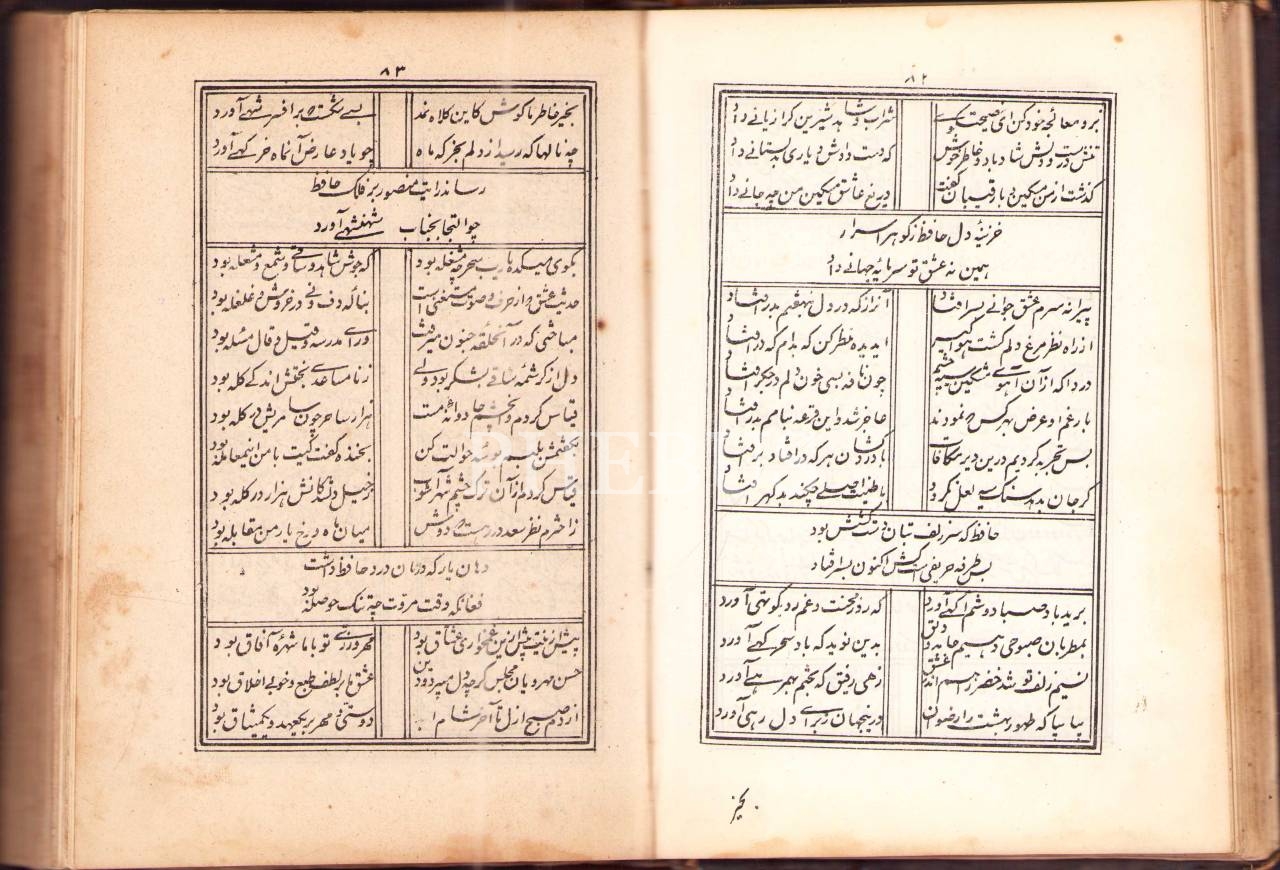 ۸۲
برو معالجه خود کن ای نصیحت گو شراب و شاهد شیرین کرا زیانی داد
تنش درست و دلش شاد باد و خاطر خوش که دست دادش و یاری بدستانی داد
گذشت از من مسکین و با رقیبان گفت دریغ عاشق مسکین من چه جانی داد
خزینهٔ دل حافظ ز گوهر اسرار
همین نه عشق تو سرمایه جهانی داد
پیرانه سرم عشق جوانی بسر افتاد آنراز که در دل بنهفتم بدر افتاد
از راه نظر مرغ دلم گشت هواگیر ایدیده نظر کن که بدام که در افتاد
دردا که از آن آهوی مشکین سیه چشم چون نافه بسی خون دلم در جگر افتاد
بار غم او عرض بهر کس که نمودند عاجز شد و این قرعه بنامم بدر افتاد
بس تجربه کردیم درین دیر مکافات با دردکشان هر که در افتاد بر افتاد
گر جان بدهد سنگ سیه لعل نگردد با طینت اصلی چکند بد گهر افتاد
حافظ که سر زلف بتان دست کشش بود
بس طرفه حریفی است کش اکنون بسر افتاد
برید باد صبا دوشم آگهی آورد که روز محنت و غم رو بکوتهی آورد
بمطربان صبوحی دهیم جامه چاک بدین نوید که باد سحرگهی آورد
نسیم زلف تو شد خضر راهم اندر عشق زهی رفیق که بختم بهمرهی آورد
بیا بیا که طهور بهشت را رضوان درینجهان ز برای دل رهی آورد
بخیر
۸۳
بخیر خاطر ما کوش کاین کلاه نمد بسی شکست که بر افسر شهی آورد
چه نالها که رسید از دلم بخرگه ماه چو یاد عارض آنماه خرگهی آورد
رساند رایت منصور بر فلک حافظ
چو التجا بجناب شهنشهی آورد
بکوی میکده یارب سحر چه مشغله بود که جوش شاهد و ساقی و شمع و مشعله بود
حدیث عشق که از حرف و صوت مستغنی است بناله دف و نی در خروش و غلغله بود
مباحثی که در آنحلقهٔ جنون میرفت ورای مدرسه و قیل و قال مسئله بود
دل از کرشمه ساقی بشکر بود ولی ز نامساعدی بختش اندکی گله بود
قیاس کردم و آنچشم جادوانهٔ مست هزار ساحر چون سامریش در گله بود
بگفتمش بلبم بوسه حوالت کن بخنده گفت کیت با من اینمعامله بود
دهان یار که درمان درد حافظ داشت
فغانکه وقت مروت چه تنگ حوصله بود
پیش ازینت بیش ازین غمخواری عشاق بود مهرورزی تو با ما شهرهٔ آفاق بود
حسن مهرویان مجلس گرچه دل میبرد و دین عشق ما بر لطف طبع و خوبی اخلاق بود
از دم صبح ازل تا آخر شام ابد دوستی و مهر بر یکعهد و یکمیثاق بود